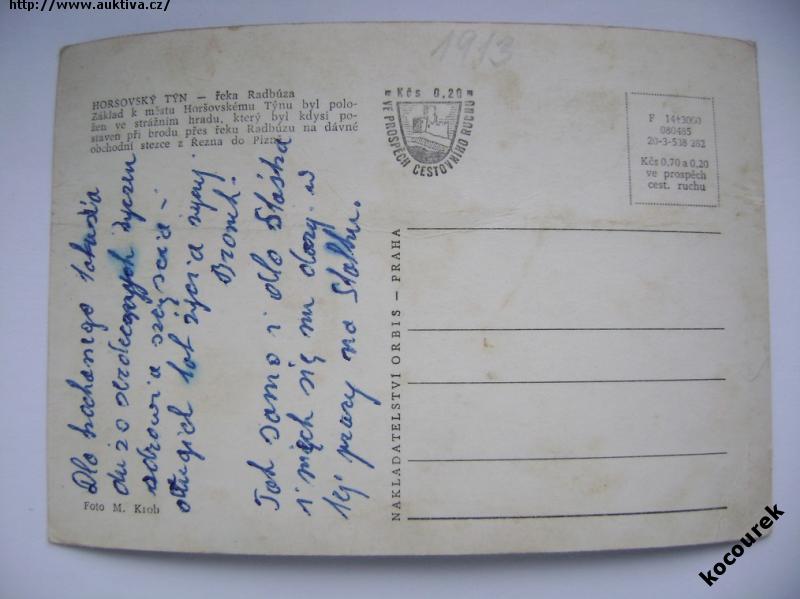 http://www.auktiva.cz/
1913
HORŠOVSKÝ TÝN — řeka Radbúza
Základ k městu Horšovskému Týnu byl polo-
žen ve strážním hradu, který byl kdysi po-
staven při brodu přes řeku Radbúzu na dávné
obchodní stezce z Řezna do Plzně
Kčs 0,20
VE PROSPĚCH CESTOVNÍHO RUCHU
F 14+3060
080485
20-3-538 282
Kčs 0,70 a 0,20
ve prospěch
cest. ruchu
Dla kochanego
dużo serdecznych życzeń
zdrowia szczęścia
długich lat życia
Bronch.
Tak samo i dla Stasha
i niech się mu darzy w
jej pracy na
Foto M. Krob
NAKLADATELSTVÍ ORBIS — PRAHA
kocourek